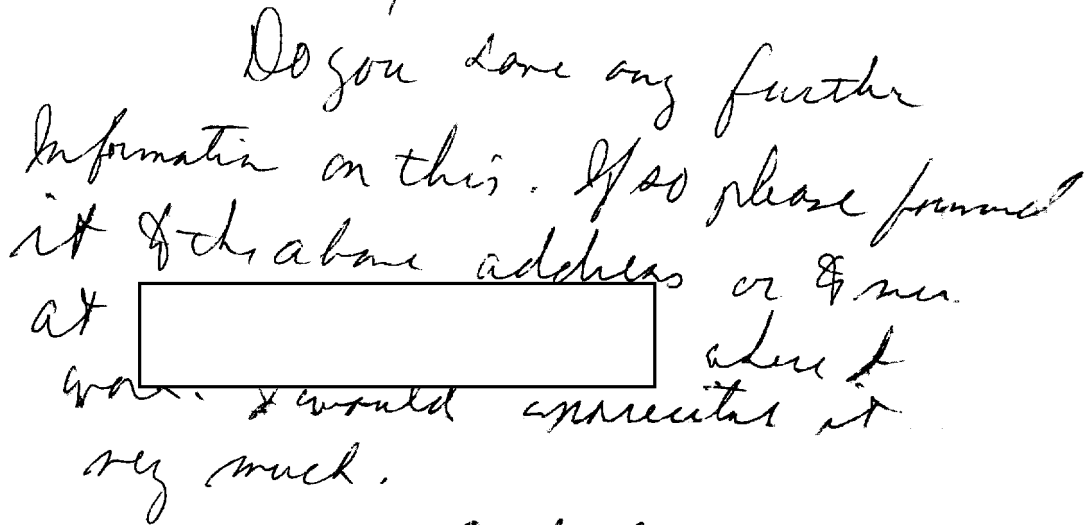 Do you have any further
Information on this. If so please forward
it to the above address or to me
at
where I
work. I would appreciate it
very much.